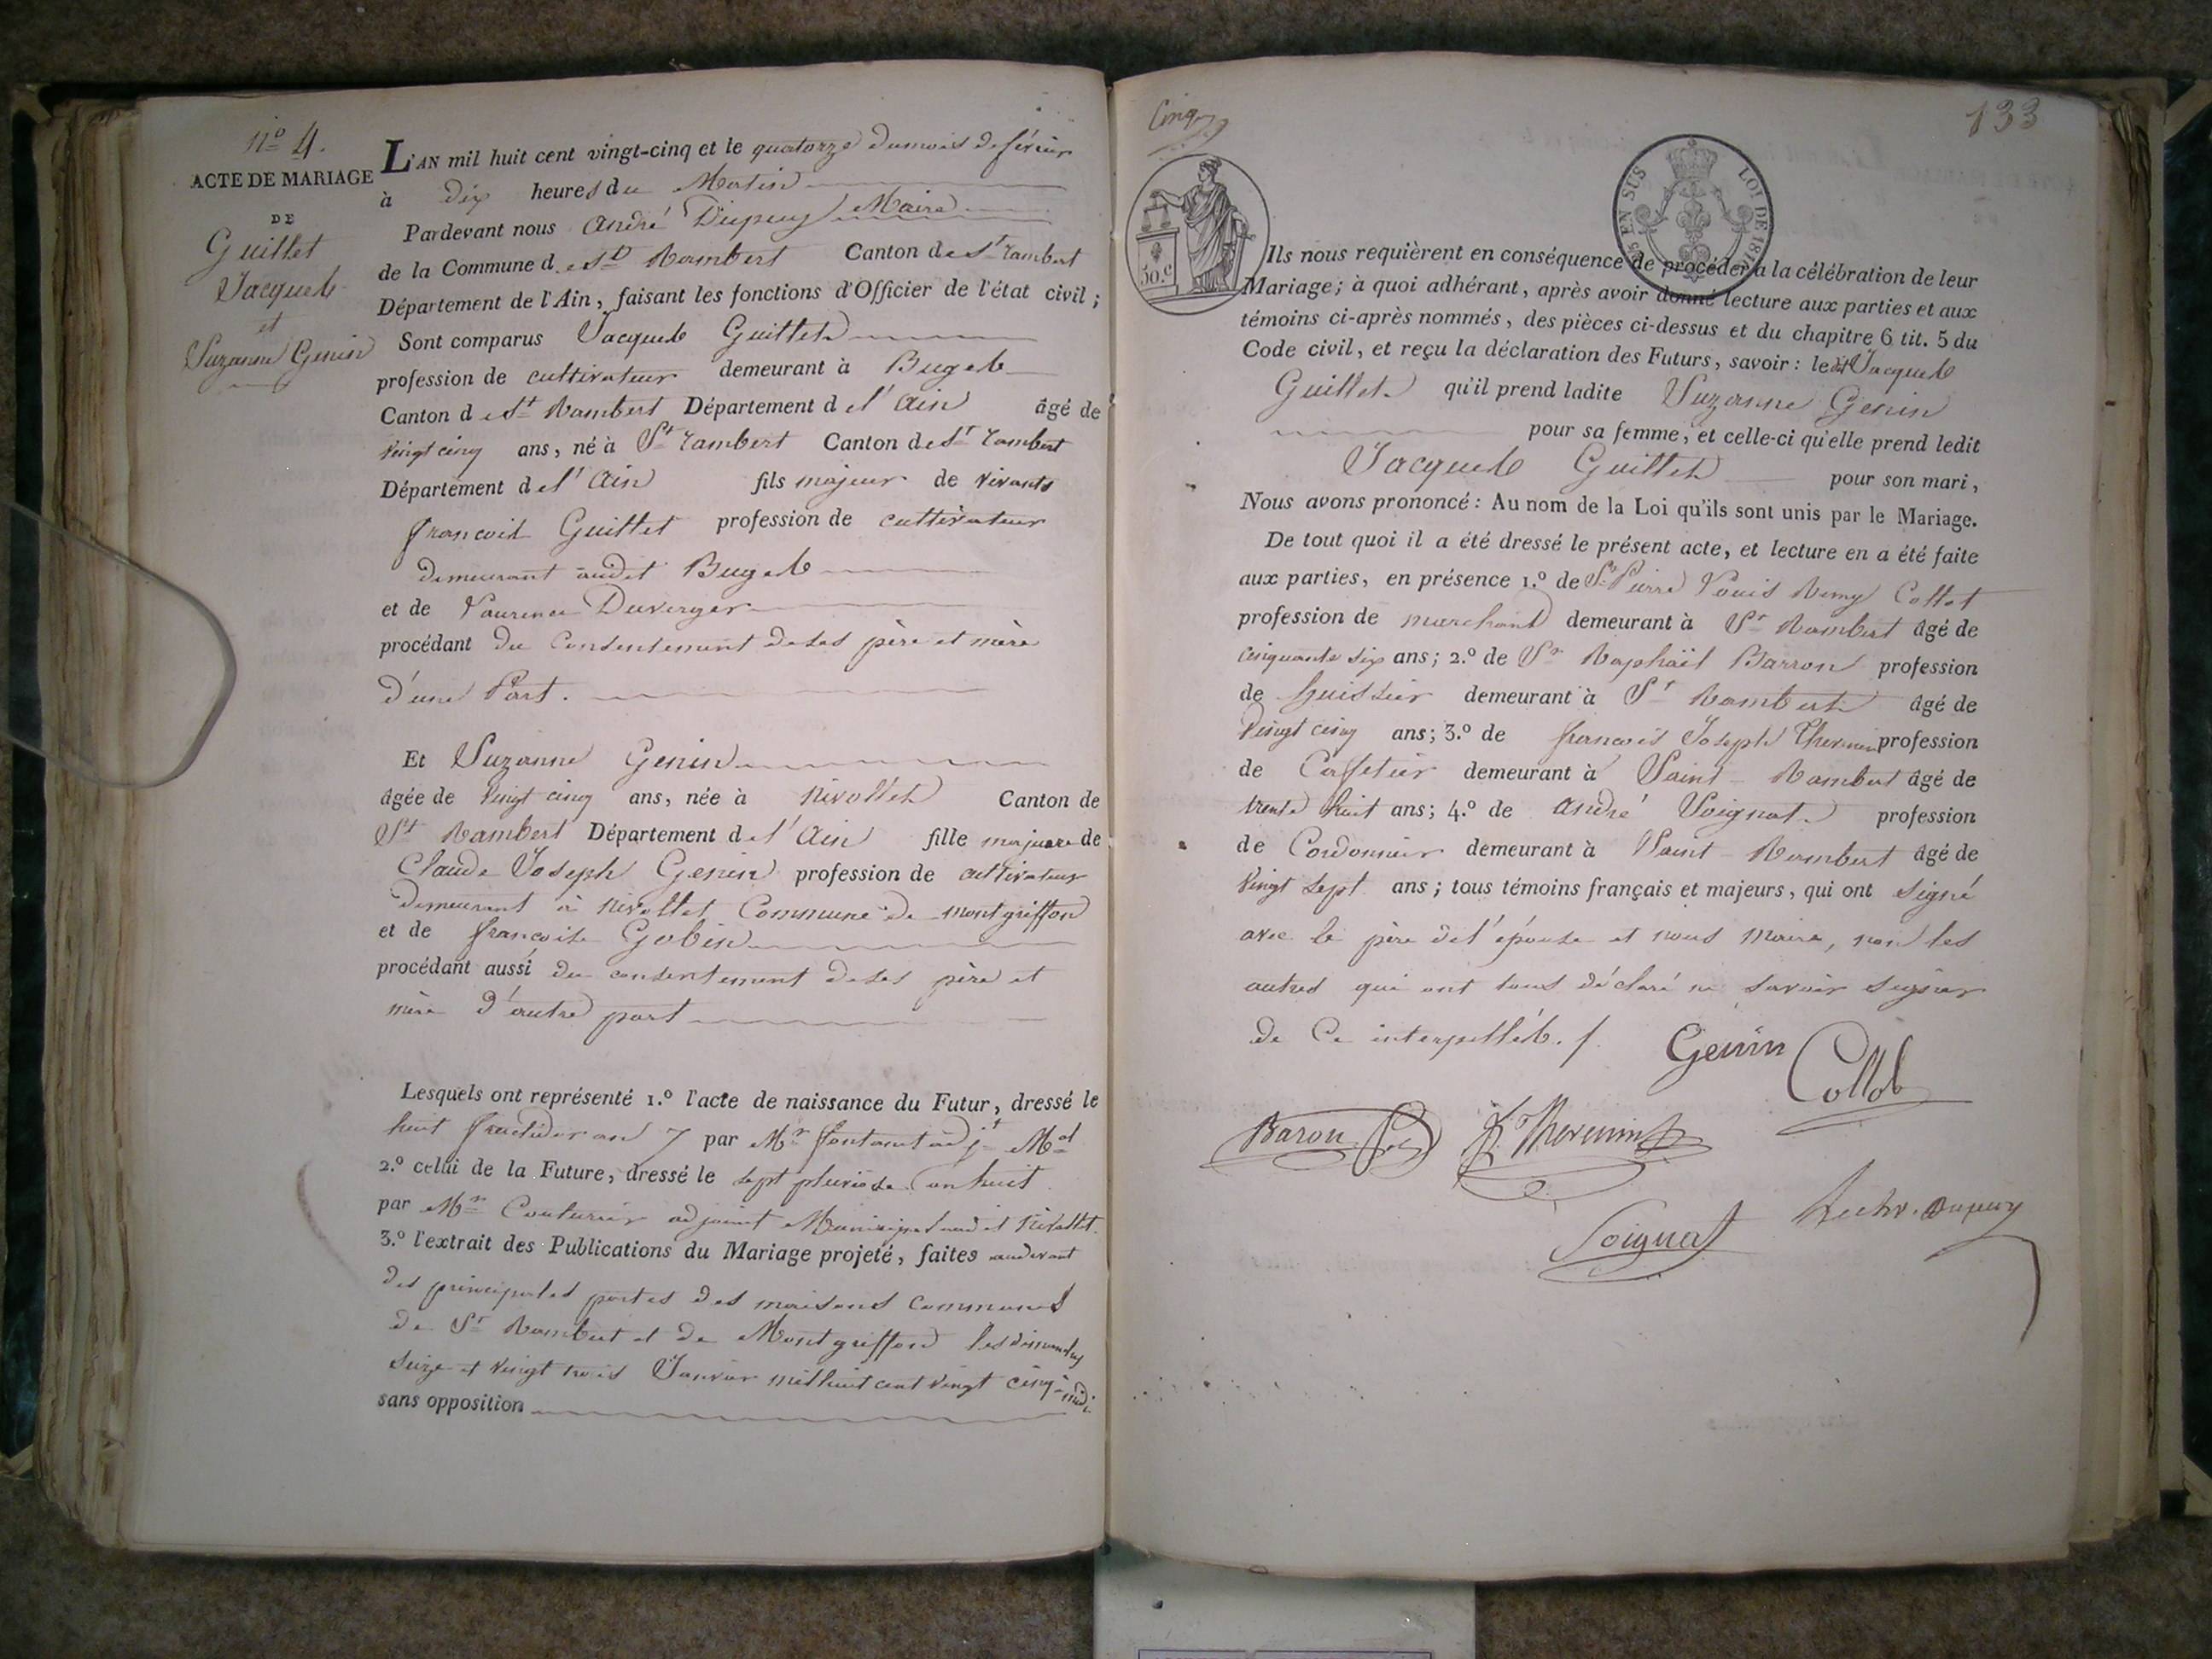 n.º 4.
ACTE DE MARIAGE
DE
Guillet
Jacques
et
Suzanne Genin
L'AN mil huit cent vingt-cinq et le quatorze du mois de février
à dix heures du Matin
Pardevant nous André Dupuy Maire
de la Commune de St Rambert Canton de St rambert
Département de l'Ain, faisant les fonctions d'Officier de l'état civil;
Sont comparus Jacques Guillet
profession de cultivateur demeurant à Buges
Canton de St Rambert Département de l'Ain âgé de
vingt cinq ans, né à St rambert Canton de St rambert
Département de l'Ain fils majeur de vivants
françois Guillet profession de cultivateur
demeurant audit Buges
et de Laurence Duverger
procédant du consentement de ses père et mère
d'une Part.
Et Suzanne Genin
âgée de vingt cinq ans, née à nivollet Canton de
St Rambert Département de l'Ain fille majeure de
Claude Joseph Genin profession de cultivateur
demeurant à nivollet Commune de montgriffon
et de françoise Gobin
procédant aussi du consentement de ses père et
mère d'autre part
Lesquels ont représenté 1.º l'acte de naissance du Futur, dressé le
huit fructidor an 7 par Mr fontant adjt Mal
2.º celui de la Future, dressé le sept pluviose an huit
par Mr Couturier adjoint Municipal audit Nivollet.
3.º l'extrait des Publications du Mariage projeté, faites audevant
des principales portes des maisons communes
de St Rambert et de Montgriffon les dimanches
seize et vingt trois Janvier mil huit cent vingt cinq à midi
sans opposition
Cinq
133
50.c
25 EN SUS LOI DE 1816
Ils nous requièrent en conséquence de procéder à la célébration de leur
Mariage; à quoi adhérant, après avoir donné lecture aux parties et aux
témoins ci-après nommés, des pièces ci-dessus et du chapitre 6 tit. 5 du
Code civil, et reçu la déclaration des Futurs, savoir: ledit Jacques
Guillet qu'il prend ladite Suzanne Genin
pour sa femme, et celle-ci qu'elle prend ledit
Jacques Guillet pour son mari,
Nous avons prononcé: Au nom de la Loi qu'ils sont unis par le Mariage.
De tout quoi il a été dressé le présent acte, et lecture en a été faite
aux parties, en présence 1.º de Sr Pierre Louis Remy Collot
profession de marchand demeurant à St Rambert âgé de
cinquante six ans; 2.º de Sr Raphaël Barron profession
de huissier demeurant à St Rambert âgé de
vingt cinq ans; 3.º de françois Joseph Thevenin profession
de Caffetier demeurant à Saint Rambert âgé de
trente huit ans; 4.º de André Soignat profession
de Cordonnier demeurant à Saint Rambert âgé de
vingt sept ans; tous témoins français et majeurs, qui ont signé
avec le père de l'épouse et nous maire, non les
autres qui ont tous déclaré ne savoir signer
de ce interpellés./.
Genin
Collot
Baron
Thevenin
Soignat
Dupuy